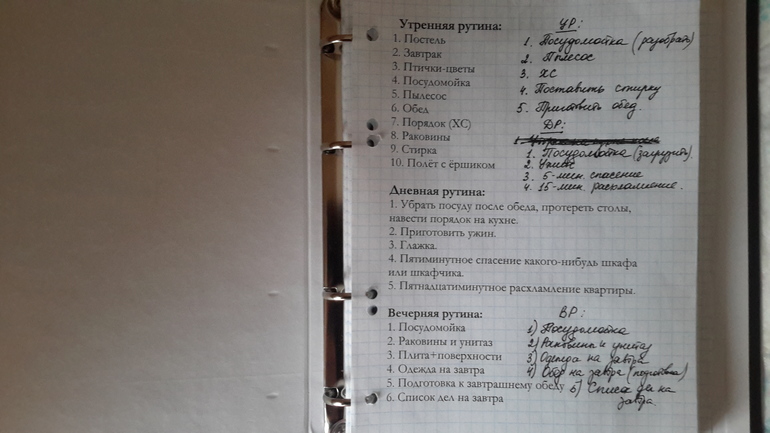 Утренняя рутина:
1. Постель
2. Завтрак
3. Птички-цветы
4. Посудомойка
5. Пылесос
6. Обед
7. Порядок (ХС)
8. Раковины
9. Стирка
10. Полёт с ёршиком
УР:
1. Посудомойка (разобрать)
2. Пылесос
3. ХС
4. Поставить стирку
5. Приготовить обед.
ДР:
1. Посудомойка (загрузить).
2. Ужин
3. 5-мин. спасение
4. 15-мин. расхламление.
Дневная рутина:
1. Убрать посуду после обеда, протереть столы,
навести порядок на кухне.
2. Приготовить ужин.
3. Глажка.
4. Пятиминутное спасение какого-нибудь шкафа
или шкафчика.
5. Пятнадцатиминутное расхламление квартиры.
Вечерняя рутина:
1. Посудомойка
2. Раковины и унитаз
3. Плита+поверхности
4. Одежда на завтра
5. Подготовка к завтрашнему обеду
6. Список дел на завтра
ВР:
1) Посудомойка
2) Раковина и унитаз
3) Одежда на завтра
4) Обед на завтра (подготовка)
5) Список дел на
завтра.